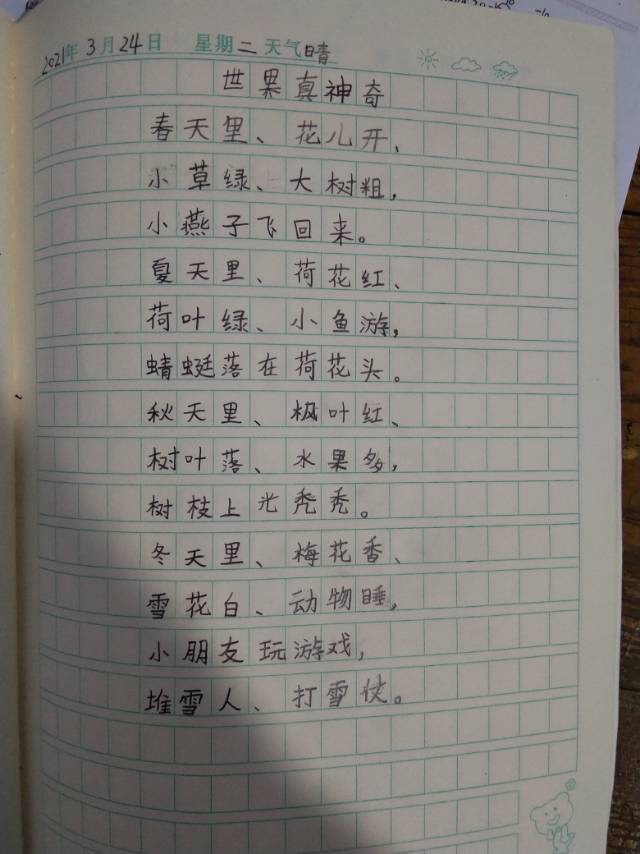 2021年3月24日 星期二 天气晴
世界真神奇
春天里、花儿开、
小草绿、大树粗,
小燕子飞回来。
夏天里、荷花红、
荷叶绿、小鱼游,
蜻蜓落在荷花头。
秋天里、枫叶红、
树叶落、水果多,
树枝上光秃秃。
冬天里、梅花香、
雪花白、动物睡,
小朋友玩游戏,
堆雪人、打雪仗。